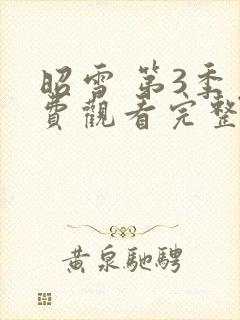 昭雪 第3季
費觀看完整
黃泉馳騁